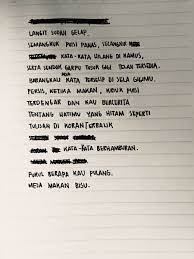 LANGIT SUDAH GELAP.
SEMANGKUK PUISI PANAS, SECANGKIR
KATA-KATA USANG DI KAMUS,
SERTA SENDOK GARPU TUSUK GIGI TELAH TERSEDIA.
BARANGKALI KATA TERSELIP DI SELA GIGIMU.
PERSIS, KETIKA MAKAN, KERUK PUISI
TERDENGAR DAN KAU BERCERITA
TENTANG HATIMU YANG HITAM SEPERTI
TULISAN DI KORAN TERBALIK
KATA-KATA BERHAMBURAN.
PUKUL BERAPA KAU PULANG.
MEJA MAKAN BISU.